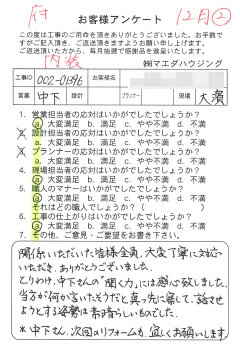 府
お客様アンケート
12月②
この度は工事のご用命を頂きありがとうございました。お手数で
すがご記入頂き、ご返送頂きますようお願い申し上げます。
ご返送頂いた方から、毎月抽選で感謝品を進呈いたします。
内装
㈱マエダハウジング
工事ID
002-01396
お客様名
営業
中下
設計
プランナー
現場
大濱
1. 営業担当者の応対はいかがでしたでしょうか?
a 大変満足 b. 満足 c. やや不満 d. 不満
2. 設計担当者の応対はいかがでしたでしょうか?
a 大変満足 b. 満足 c. やや不満 d. 不満
3. プランナーの応対はいかがでしたでしょうか?
a 大変満足 b. 満足 c. やや不満 d. 不満
4. 現場担当者の応対はいかがでしたでしょうか?
a 大変満足 b. 満足 c. やや不満 d. 不満
5. 職人のマナーはいかがでしたでしょうか?
a 大変満足 b. 満足 c. やや不満 d. 不満
それはどの職人でしょうか?( )
6. 工事の仕上がりはいかがでしたでしょうか?
a 大変満足 b. 満足 c. やや不満 d. 不満
7. その他、ご意見・ご要望をお書き下さい。
関係いただいた皆様全員、大変丁寧に対応
いただき、ありがとうございました。
とりわけ、中下さんの「聞く力」には感心致しました。
当方が何か言いたそうだと真っ先に察して、話せせ
ようとする姿勢は素晴らしいものでした。
*中下さん、次回のリフォームも宜しくお願いします。